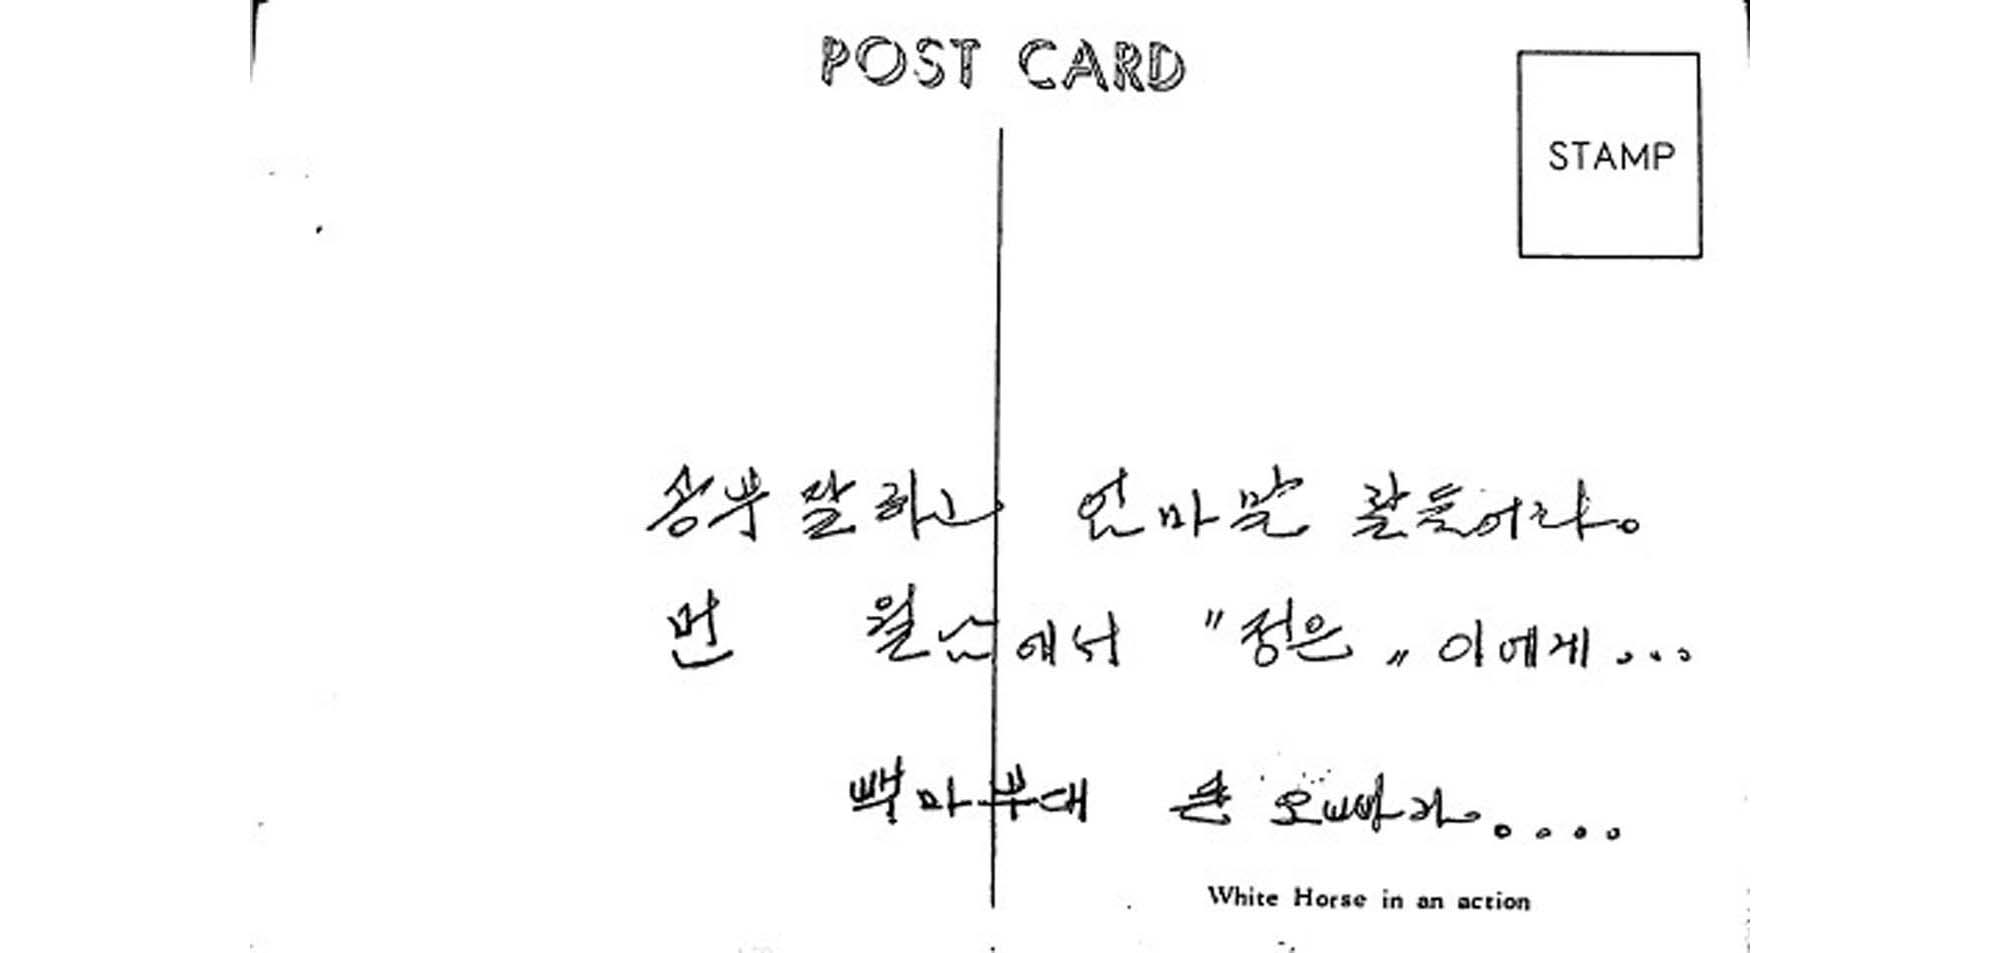 POST CARD
STAMP
공부 잘 하고 엄마 말 잘 들어라.
먼 월남에서 "정은" 이에게...
백마부대 큰 오빠가....
White Horse in an action